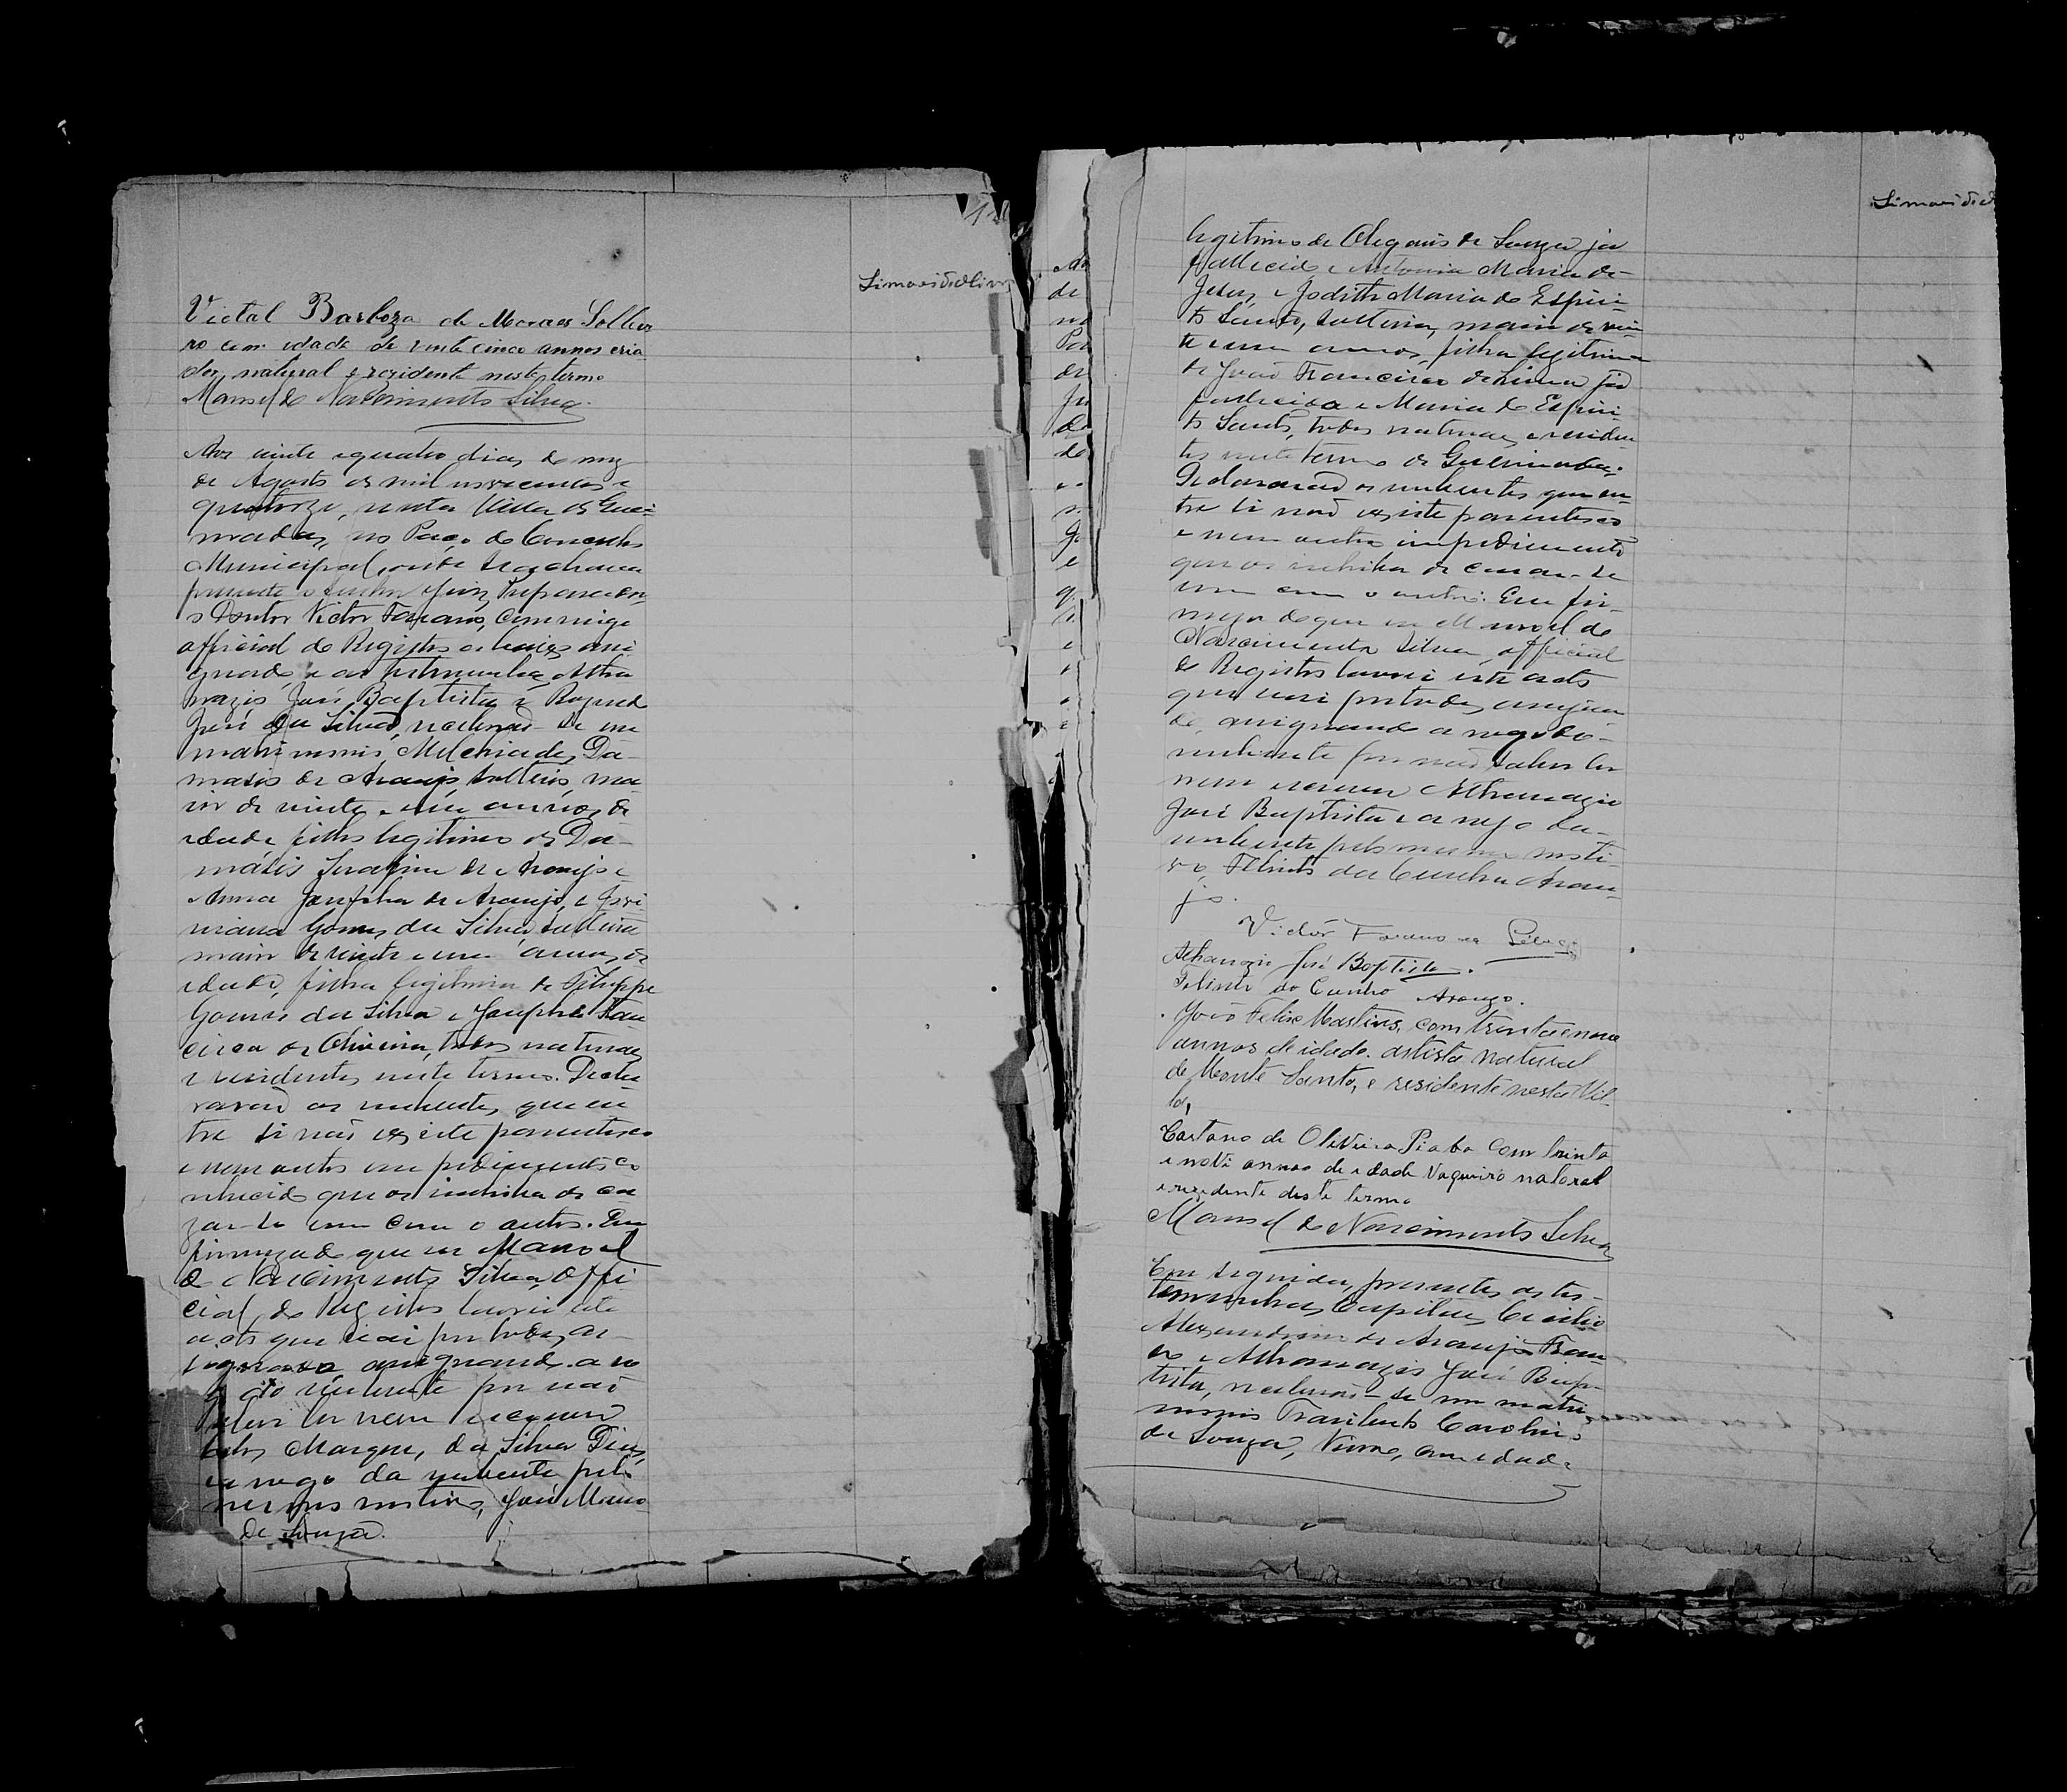 Simões d'Oliv
Victal Barboza de Moraes Soltei
ro com idade de vinte cinco annos cria
dor, natural e rezidente neste termo
Manoel do Nascimento Silva.
Aos vinte e quatro dias do mez
de Agosto de mil novecentos e
quatorze, nesta Villa de Quei
madas, no Paço do Conselho
Municipal, onde se achava
presente o Juiz Preparador,
o Doutor Victor Farano, commigo
official do Registro abaixo assi
gnado, e as testemunhas Atha
nazio José Baptista e
José da Silva, receberão-se em
matrimonio, Melchiades Da-
masio de Araujo, solteiro, ma
ior de vinte e um annos de
idade filho legitimo de Da-
masio de Araujo e
Anna Josepha de Araujo, e
Gomes da Silva, solteira
maior de vinte e um annos de
idade, filha legitima de Filippe
Gomes da Silva e Josepha Fran
cisca de Oliveira, todos naturaes
e residentes neste termo. Decla
rarão os nubentes, que en
tre si não existe parentesco
e nem outro impedimento co
nhecido que os inhiba de ca
zar-se um com o outro. Em
firmeza do que eu Manoel
do Nascimento Silva, Offi
cial do Registro lavrei este
acto que vai por todos as
signado, assignando a ro
go do nubente por não
saber ler nem escrever
Marques da Silva Dias,
e a rogo da nubente pelo
mesmo motivo, José
de Souza.
Simões d'Ol
legitimo de Olegario de Souza já
fallecido e Antonia Maria de
Jesus, e Judith Maria do Espiri
to Santo, solteira, maior de vin
te e um annos, filha legitima
de João Francisco de Lima já
fallecido e Maria do Espiri
to Santo, todos naturaes e residen
tes neste termo de Queimadas.
Declararão os nubentes que en
tre si não existe parentesco
e nem outro impedimento
que os inhiba de casar-se
um com o outro. Em fir
meza do que eu Manoel do
Nascimento Silva, official
do Registro lavrei este acto
que vai por todos assigna
do, assignando a rogo do
nubente por não saber ler
nem escrever Athanazio
José Baptista e a rogo da
nubente pelo mesmo moti
vo, Felinto da Cunha Arau
jo.
Victor Farano da Silva
Athanazio José Baptista.
Felinto da Cunha Araujo.
João Felix Martins, com trinta e nove
annos de idade. artista natural
de Monte Santo, e residente nesta Vil
la,
Caetano de Oliveira Piaba com trinta
e nove annos de idade Vaqueiro natoral
e rezidente deste termo
Manoel do Nascimento Silva
Em seguida, presentes as tes-
temunhas, Capitão Cecilio
Alexandrino de Araujo
e Athanazio José Bap
tista, receberão-se em matri
monio Carolino
de Souza, Viuvo, com idade